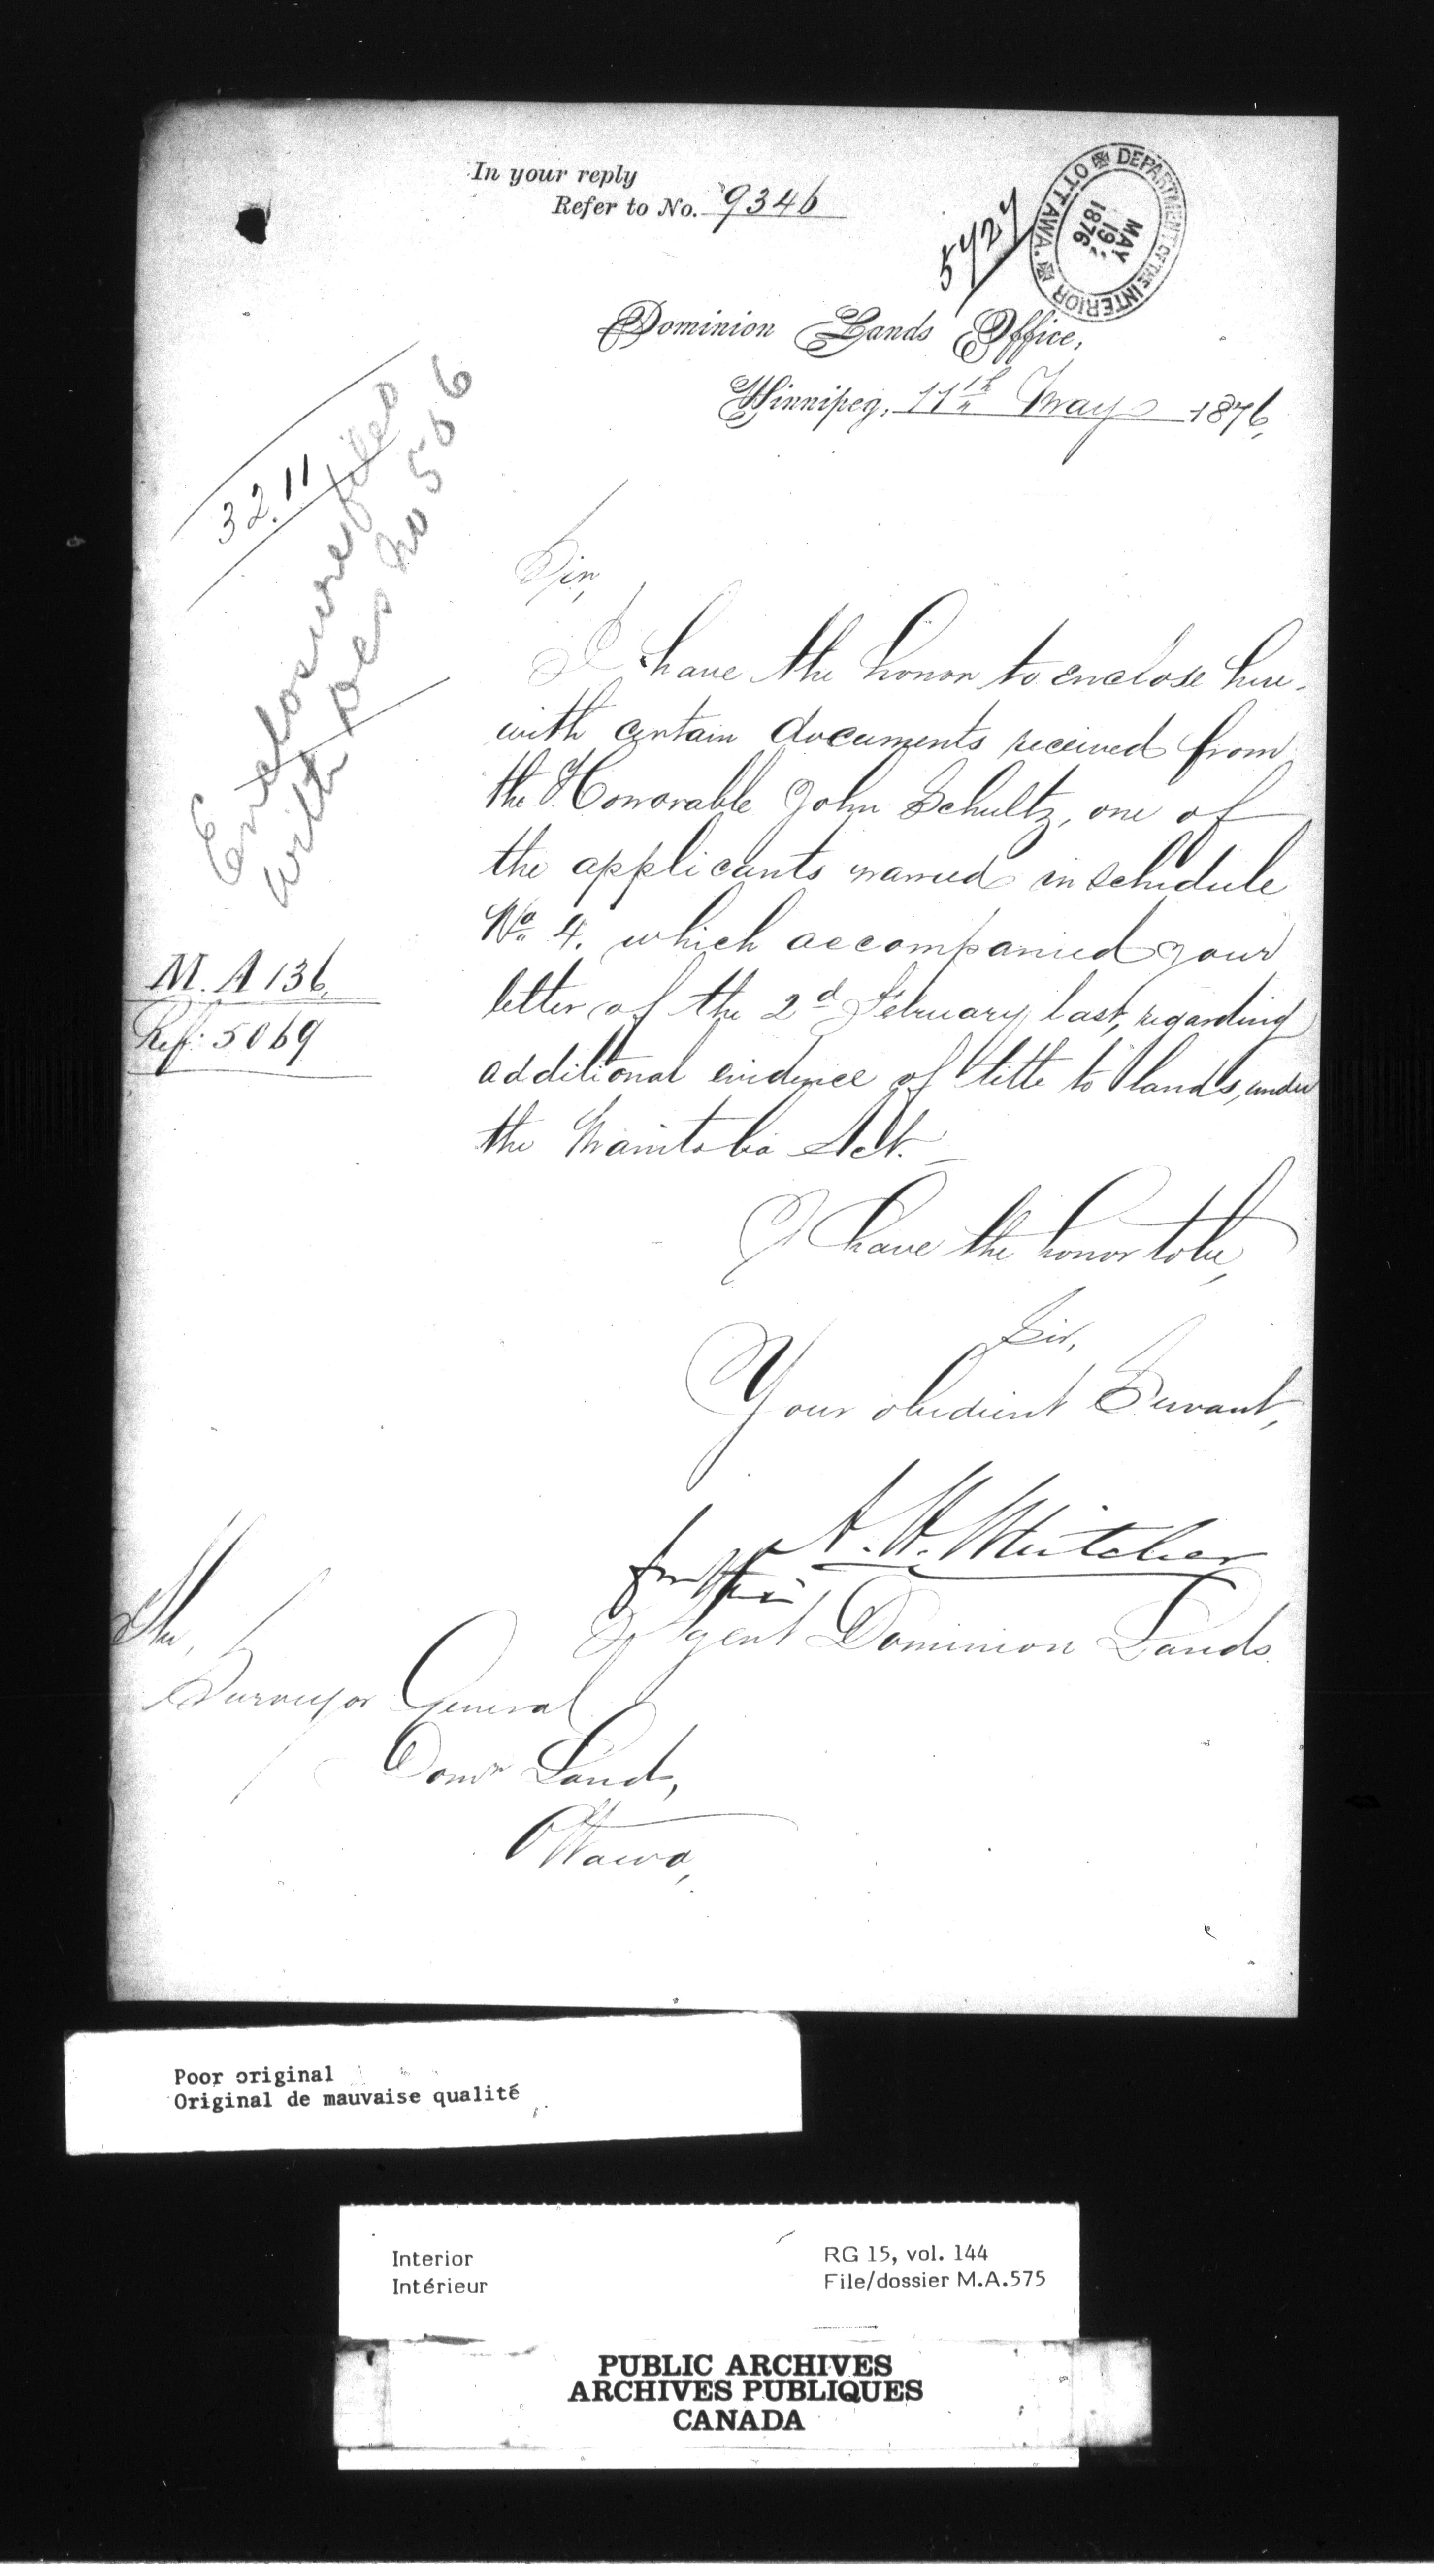 In your reply
Refer to No. 9346
5427
DEPARTMENT OF THE INTERIOR
OTTAWA.
MAY
19
1876
Dominion Lands Office,
Winnipeg, 11th May 1876,
3211
Enclosure filed
with
No 5056
Sir,
I have the honor to enclose here-
with certain documents received from
the Honorable John Schultz, one of
the applicants named in schedule
No. 4. which accompanied your
letter of the 2d February last, regarding
additional evidence of title to lands, under
the Manitoba Act.
M. A 136
Ref: 5069
I have the honor to be,
Sir,
Your obedient Servant,
A. H. Whitcher
for the
Agent Dominion Lands
The,
Surveyor General
Domn Lands,
Ottawa,
Poor original
Original de mauvaise qualité
Interior
Intérieur
RG 15, vol. 144
File/dossier M.A.575
PUBLIC ARCHIVES
ARCHIVES PUBLIQUES
CANADA